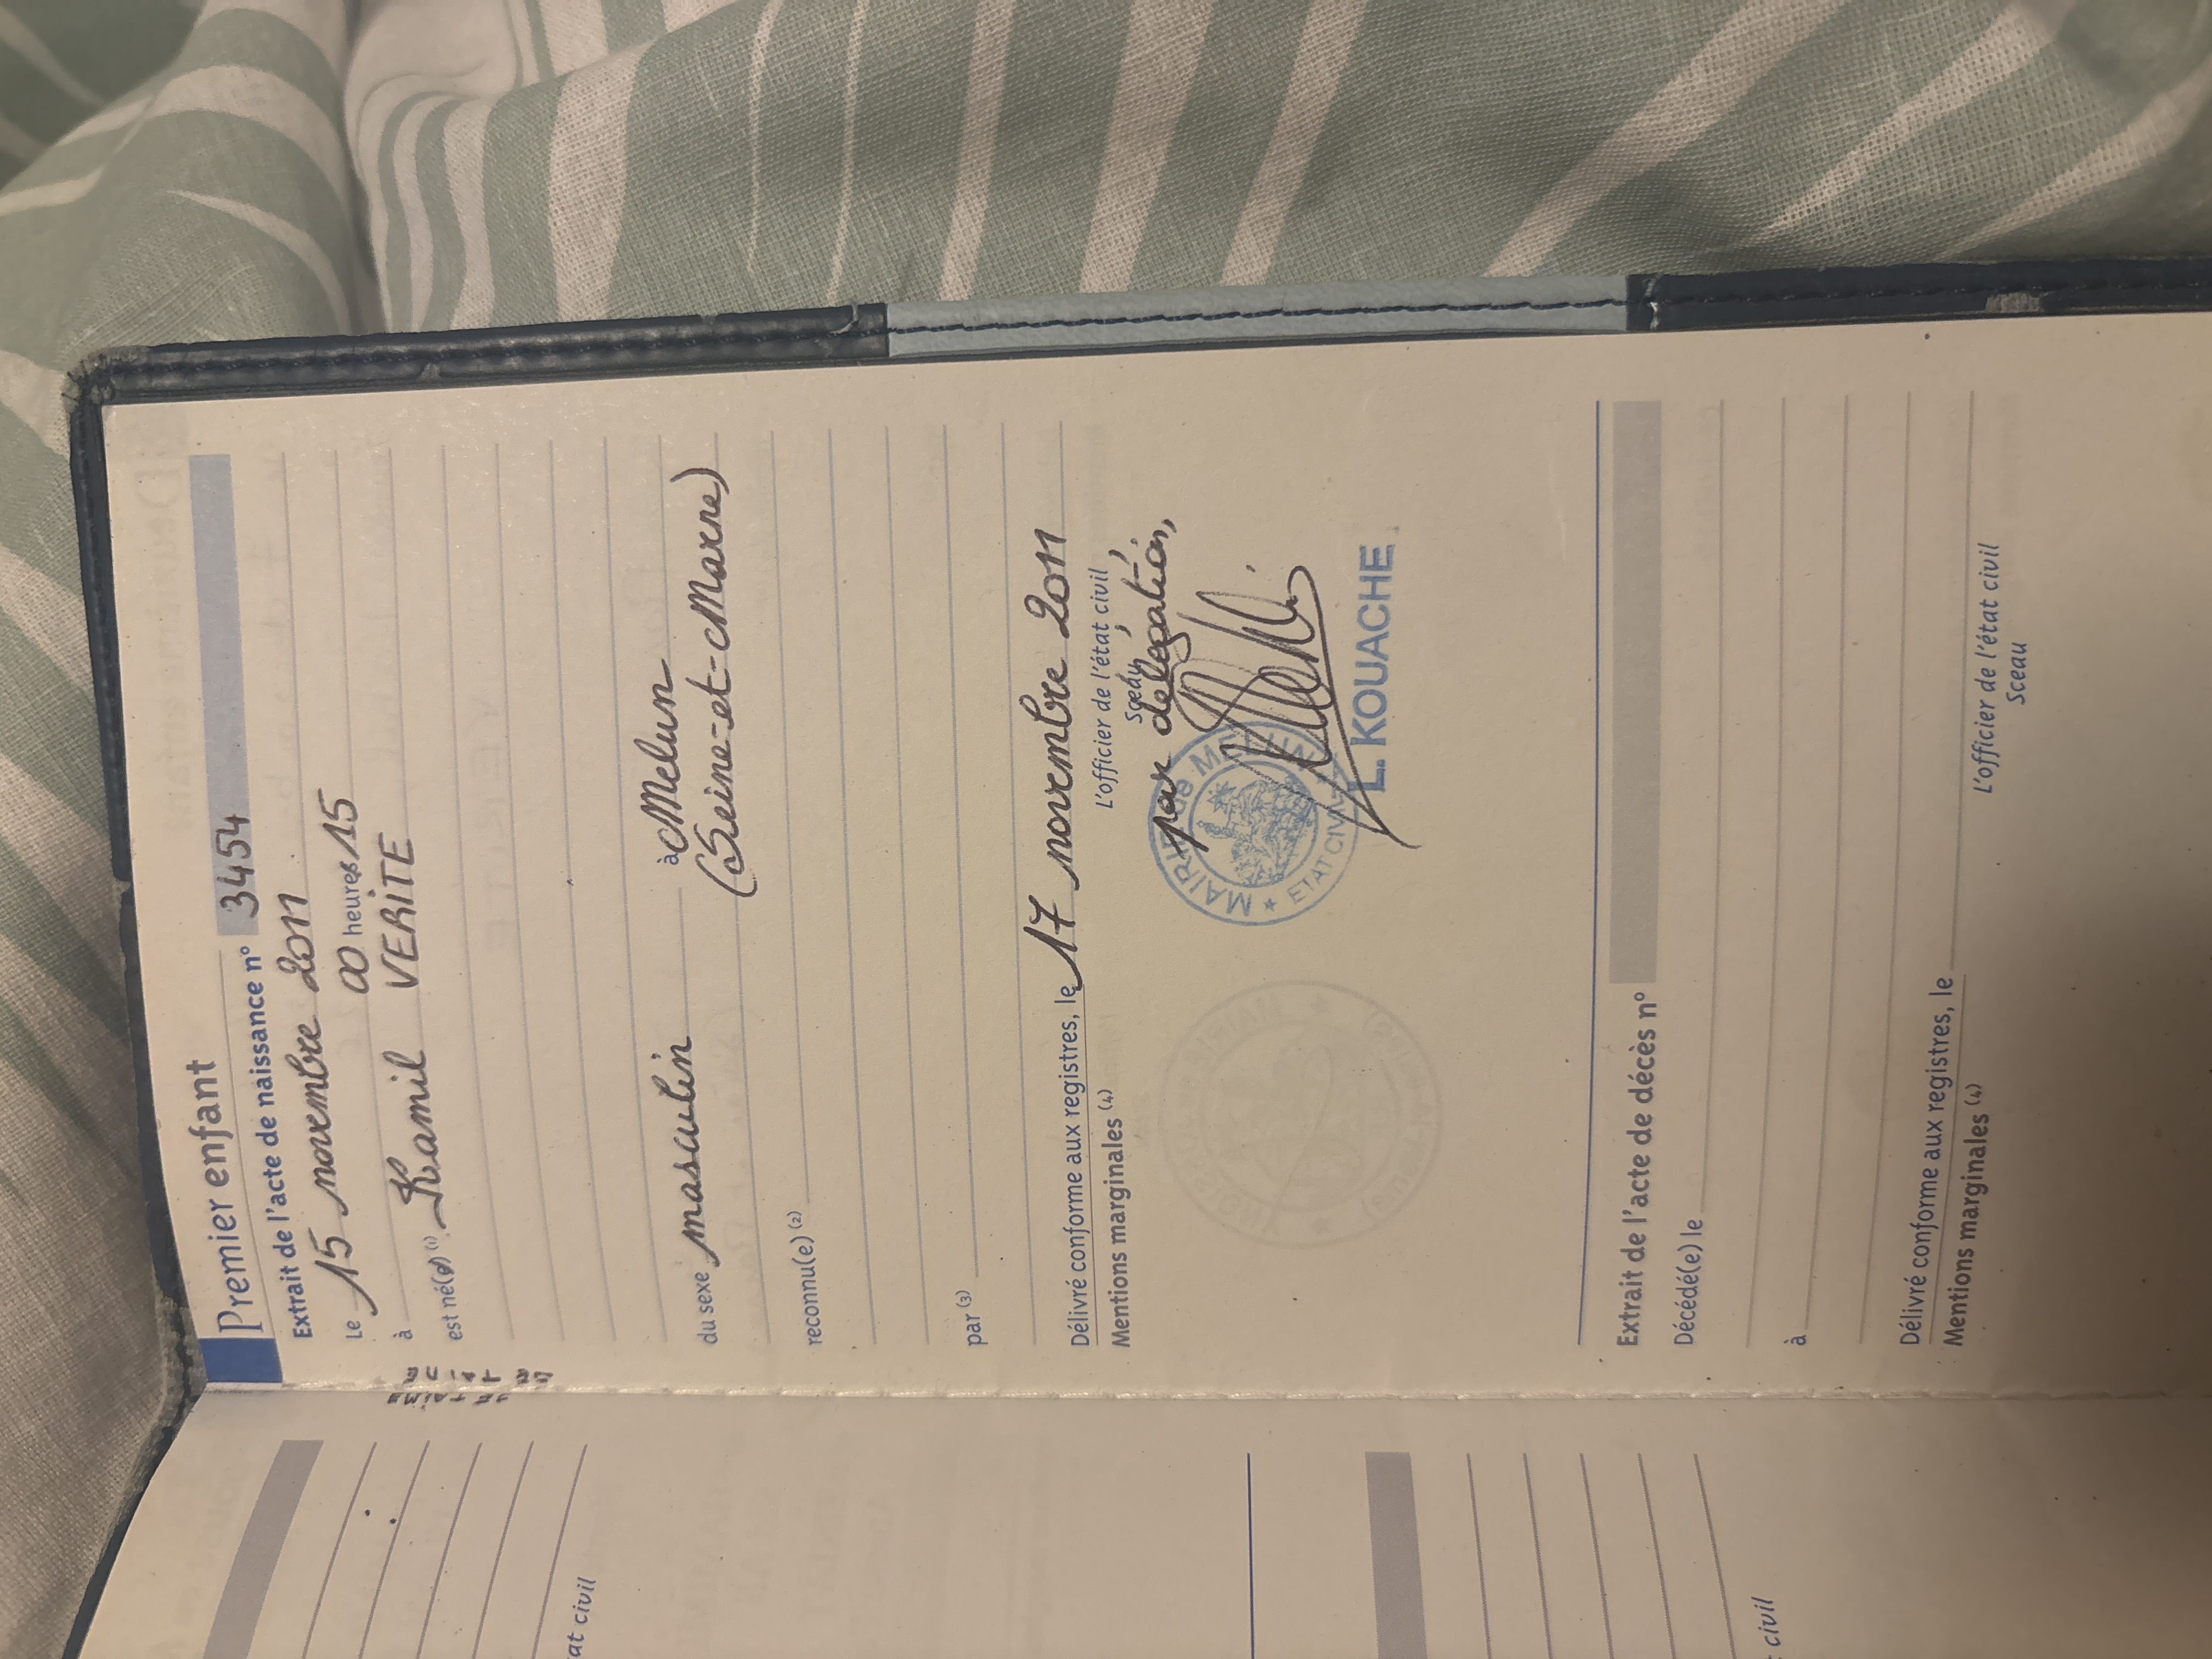 Premier enfant
Extrait de l'acte de naissance n° 3454
Le 15 novembre 2011
à 00 heures 15
est né(e) (1) Kamil VERITE
du sexe masculin à Melun
(Seine-et-Marne)
reconnu(e) (2)
par (3)
Délivré conforme aux registres, le 17 novembre 2011
Mentions marginales (4)
L'officier de l'état civil
Sceau
par délégation,
MAIRIE de MELUN
* ETAT CIVIL *
L. KOUACHE
Extrait de l'acte de décès n°
Décédé(e) le
à
Délivré conforme aux registres, le
Mentions marginales (4)
L'officier de l'état civil
Sceau
at civil
civil